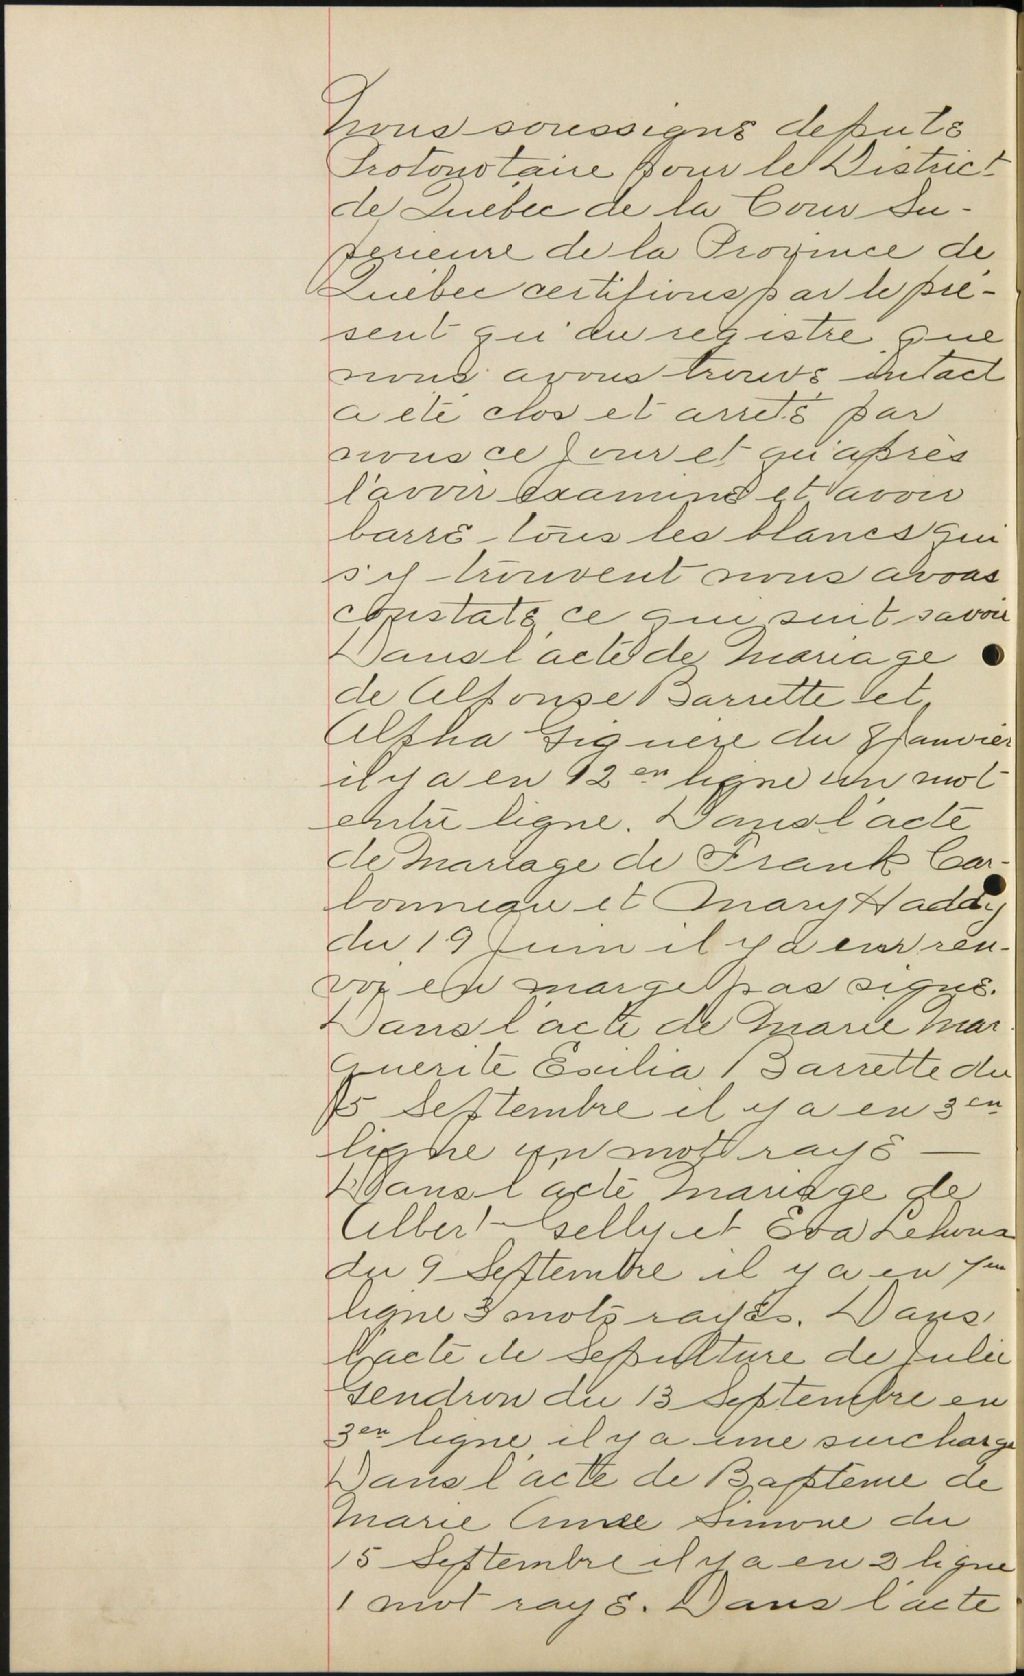 Nous soussigné député
Protonotaire pour le District
de Québec de la Cour Su-
perieure de la Province de
Québec certifions par le pré-
sent qu'au registre que
nous avons trouvé intact
a été clos et arrêté par
nous ce Jour et qu'après
l'avoir examiné et avoir
barré tous les blancs qui
s'y trouvent nous avons
constaté ce qui suit savoir
Dans l'acte de Mariage
de Alfonse Barrette et
Alpha Giguere du 8 Janvier
il y a en 12en ligne un mot
entre ligne. Dans l'acte
de Mariage de Frank Car-
bonneau et Mary Haddy
du 19 Juin il y a un ren-
voi en marge pas signé.
Dans l'acte de Marie Mar-
guerite Exilia Barrette du
15 Septembre il y a en 3en
ligne un mot rayé —
Dans l'acte Mariage de
Albert Gelly et Eva
du 9 Septembre il y a en 7en
ligne 3 mots rayés. Dans
l'acte de Sepulture de Julie
Gendron du 13 Septembre en
3en ligne il y a une surcharge
Dans l'acte de Baptême de
Marie Anne Simone du
15 Septembre il y a en 2 ligne
1 mot rayé. Dans l'acte